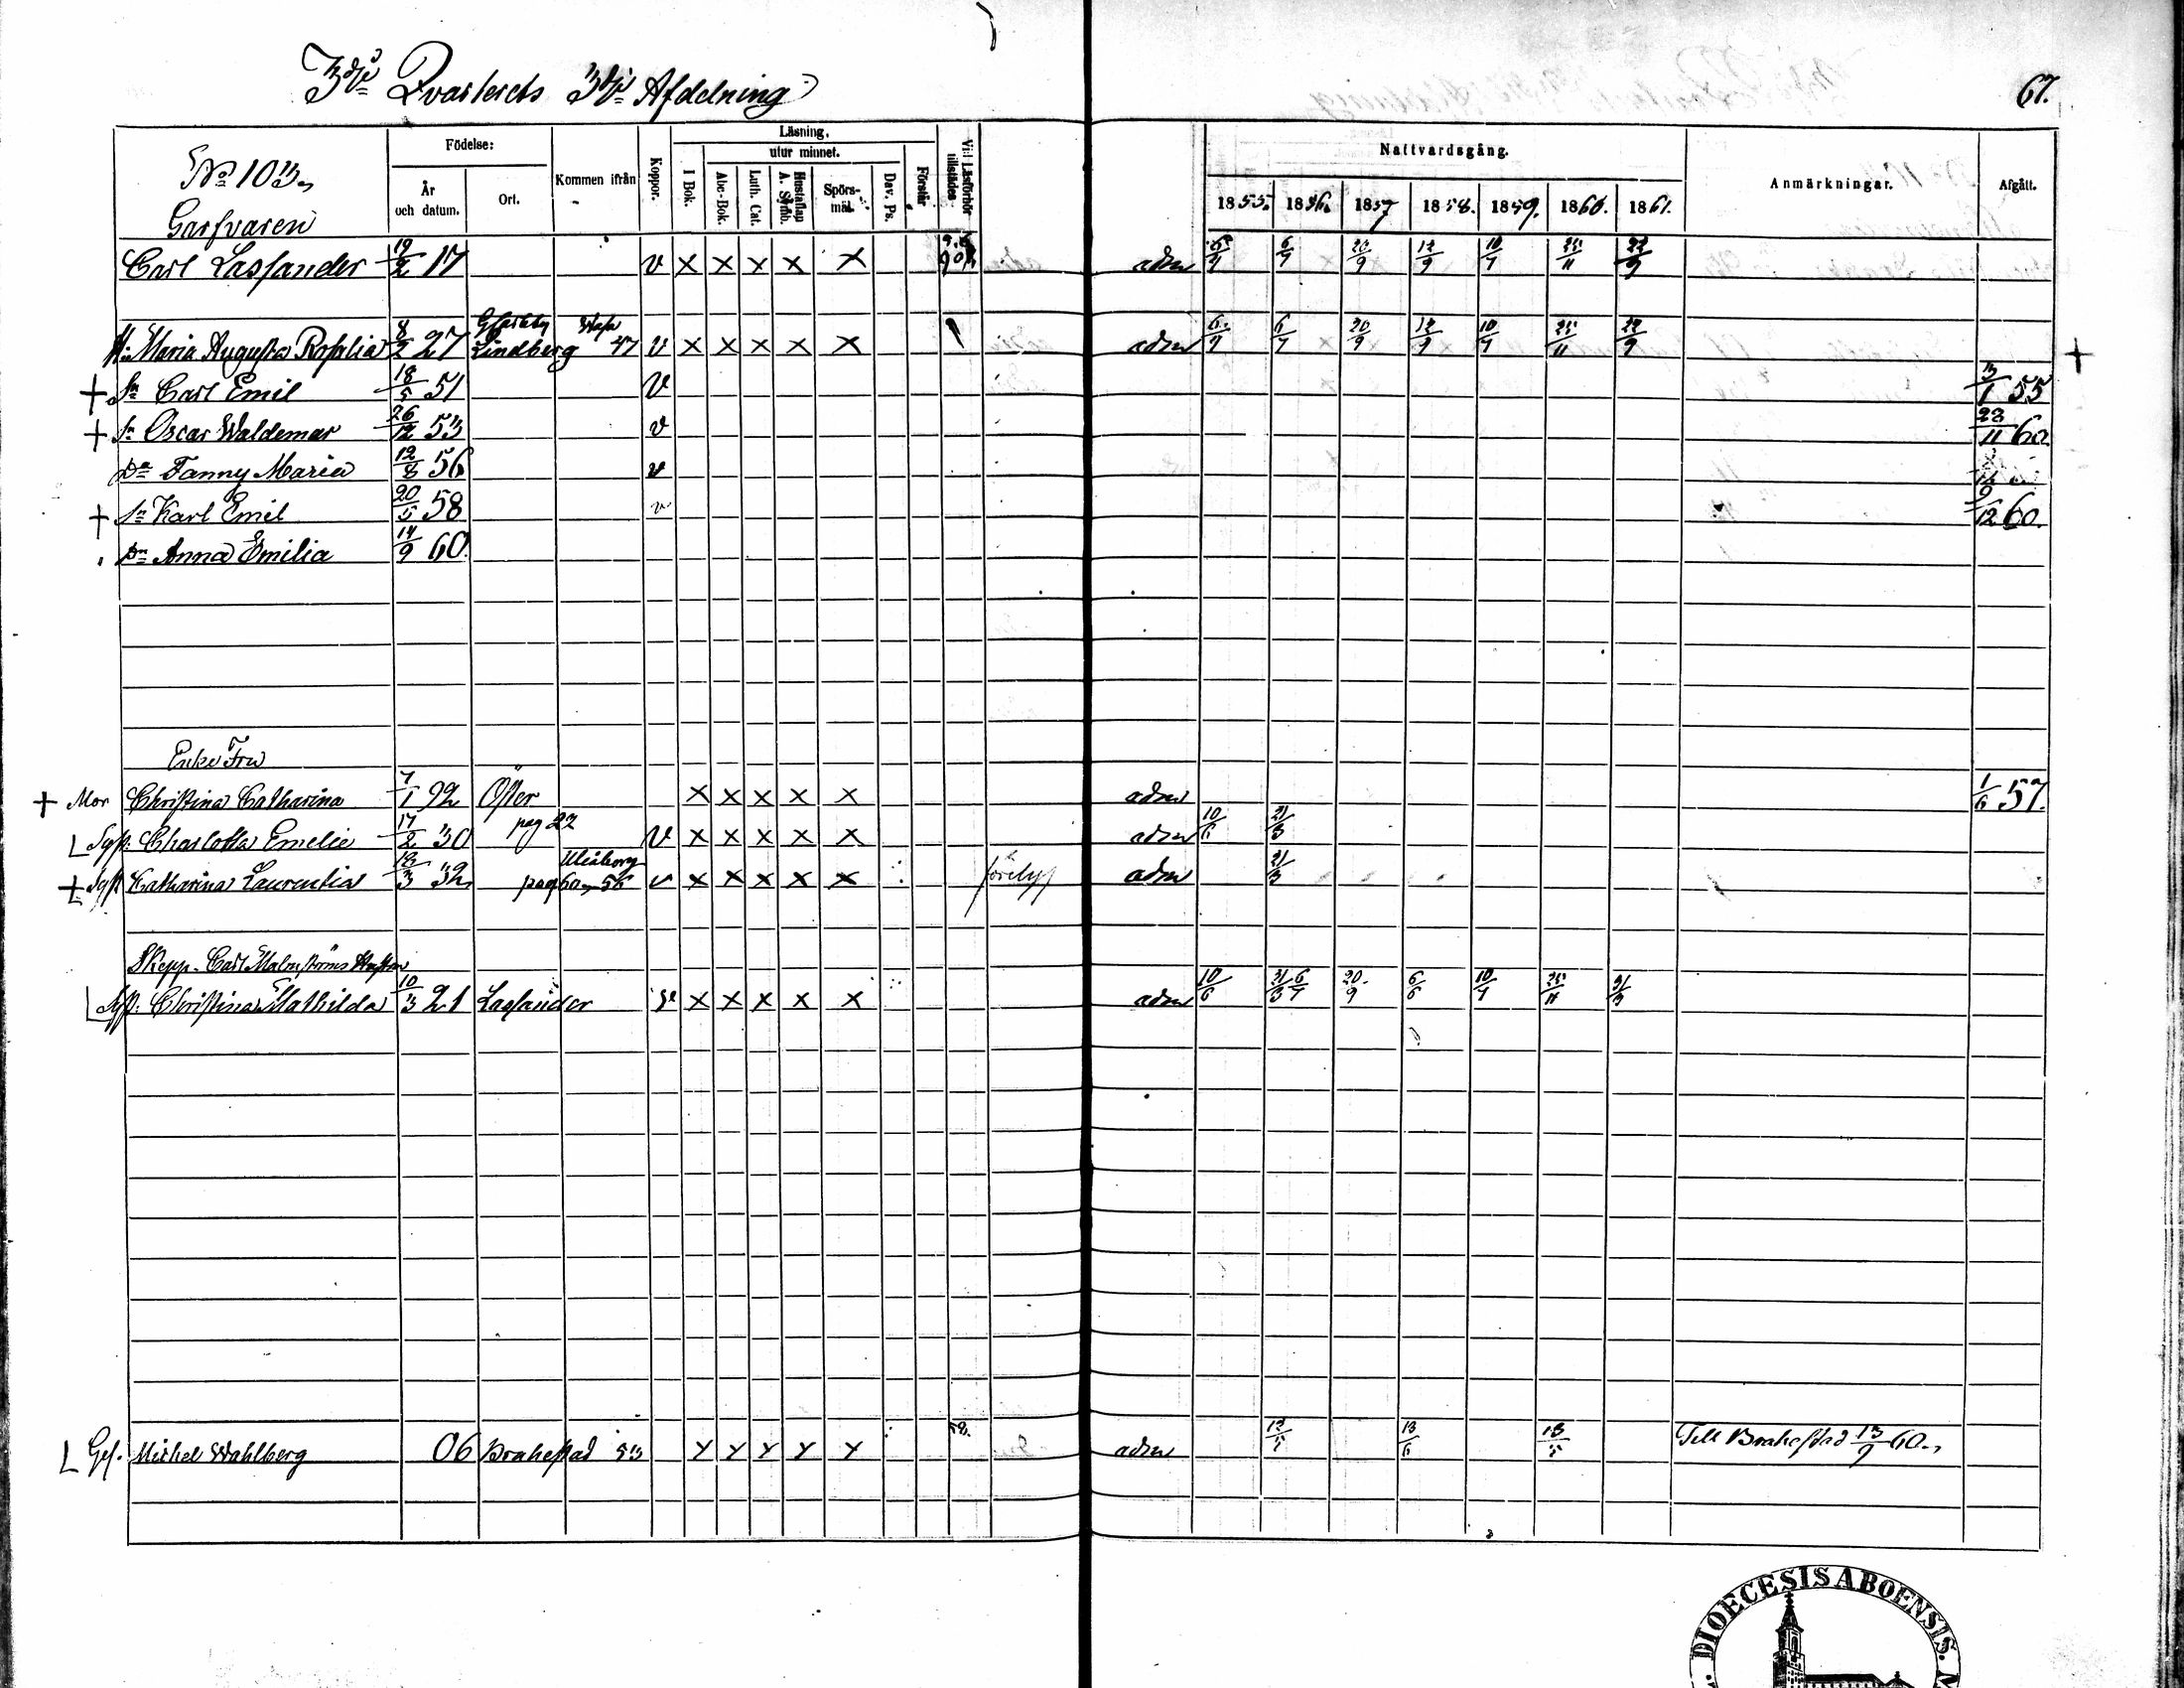 3dje Qvarterets 3dje Afdelning
67.
No 103.
Garfvaren
Födelse:
År och datum.
Ort.
Kommen ifrån
Koppor.
Läsning.
utur minnet.
I Bok.
Abc-Bok.
Luth. Cat.
Hustaflan A. Symb.
Spörsmål.
Dav. Ps.
Förstår
Vid Läsförhör tillstädes
Nattvardsgång.
1855. 1856. 1857 1858. 1859. 1860. 1861.
Anmärkningar.
Afgått.
Carl Lassander 19/2 17 v x x x x x adm 6/7 6/7 20/9 12/9 10/7 25/11 22/9
H. Maria Augusta Rosalia 8/2 27 Lindberg Wasa 47 v x x x x x adm 6/7 6/7 20/9 12/9 10/7 25/11 22/9
+ Sn Carl Emil 18/5 51 v 3/1 55
+ Sn Oscar Waldemar 26/12 53 v 23/11 60.
Dr Fanny Maria 12/8 56 v
+ Sn Karl Emil 20/5 58 v 9/12 60.
Dr Anna Emilia 14/9 60.
Enke Fru
+ Mor Christina Catharina 7/1 92 Öster x x x x x adm 1/6 57.
Syst: Charlotta Emelie 17/2 30 pag 22 v x x x x x adm 10/6 21/3
+ Syst Catharina Laurentia 18/3 32 Uleåborg pag 60 56 v x x x x x adm 21/3
Skepp. Carl Malmströms Hustru
Syst: Christina Mathilda 10/3 21 Lassander v x x x x x adm 10/6 21/3 6/7 20/9 6/6 10/7 25/11 31/3
Ges. Michel Wahlberg 06 Brahestad 53 x x x x x 58. adm 13/5 13/6 13/5 Till Brahestad 13/9 60.
DIOECESIS ABOENSIS.